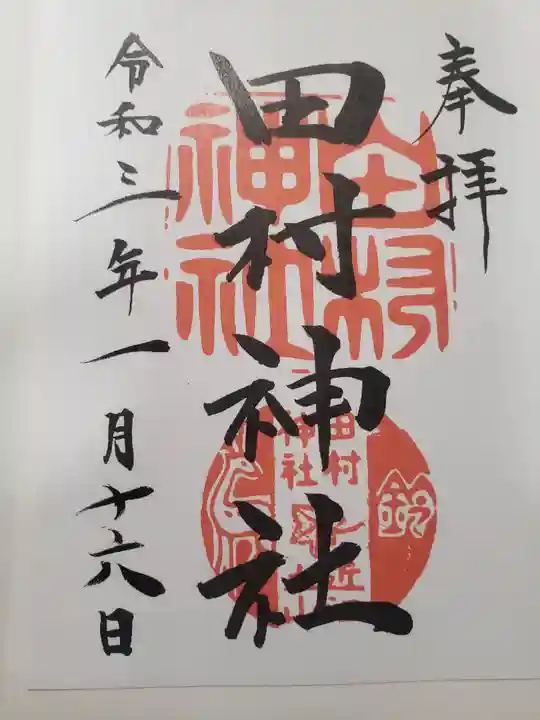 奉拝
田村神社
令和三年一月十六日
田村
神社
田村
神社
鈴